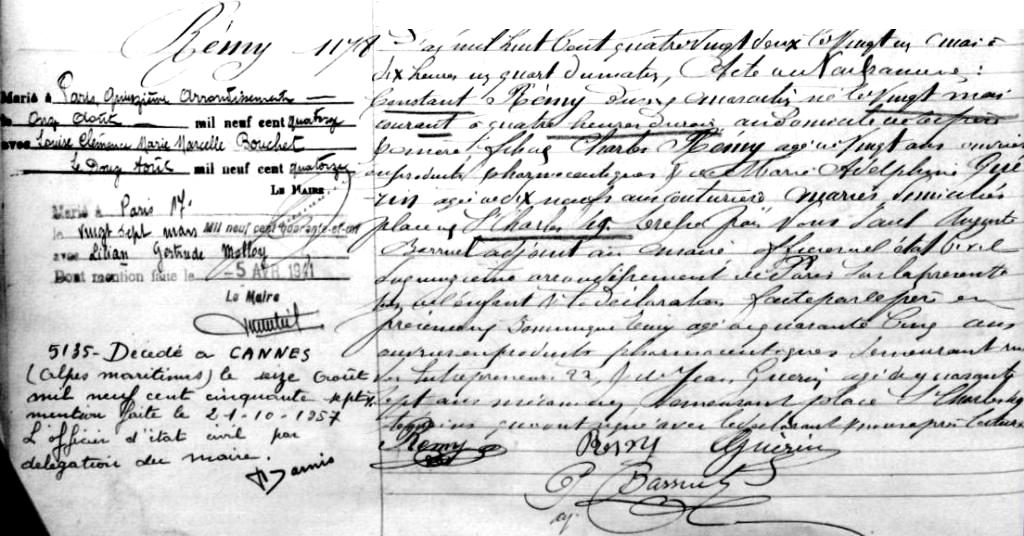 Rémy 1178
Marié à Paris, Quinzième Arrondissement
le Onze Août mil neuf cent quatorze
avec Louise Clémence Marie Marcelle Bouchet
Le Douze Août mil neuf cent quatorze
LE MAIRE
Marié à Paris 17
le vingt sept mars mil neuf cent quarante-et-un
avec Lilian Gertrude Molloy
Dont mention faite le -5 AVR 1941
Le Maire
5135 - Décédé à CANNES
(Alpes maritimes) le seize août
mil neuf cent cinquante sept
mention faite le 21-10-1957
L'officier d'état civil par
delegation du maire.
L'an mil huit cent quatre vingt deux le vingt un mai à
dix heures un quart du matin, Acte de Naissance :
Constant Rémy du sexe masculin né le vingt mai
courant à quatre heures du soir au domicile de ses père
et mère, fils de Charles Rémy agé de vingt ans ouvrier
en produits pharmaceutiques & de Marie Adelphine Gué
rin agée de dix neuf ans couturière mariés domiciliés
place St Charles 19. Dressé par Nous Paul Auguste
Barruel adjoint au maire, officier de l'état Civil
du arrondissement de Paris sur la présente
de l'enfant & la déclaration faite par le père en
présence de Dominique Remy agé de quarante cinq ans
ouvrier en produits pharmaceutiques demeurant rue
des Entrepreneurs 22, & de Jean Guérin agé de quarante
sept ans mécanicien, demeurant place St Charles 19
témoins qui ont signé avec le déclarant & nous après lecture
Rémy Remy Guérin
P. Barruel
adj.